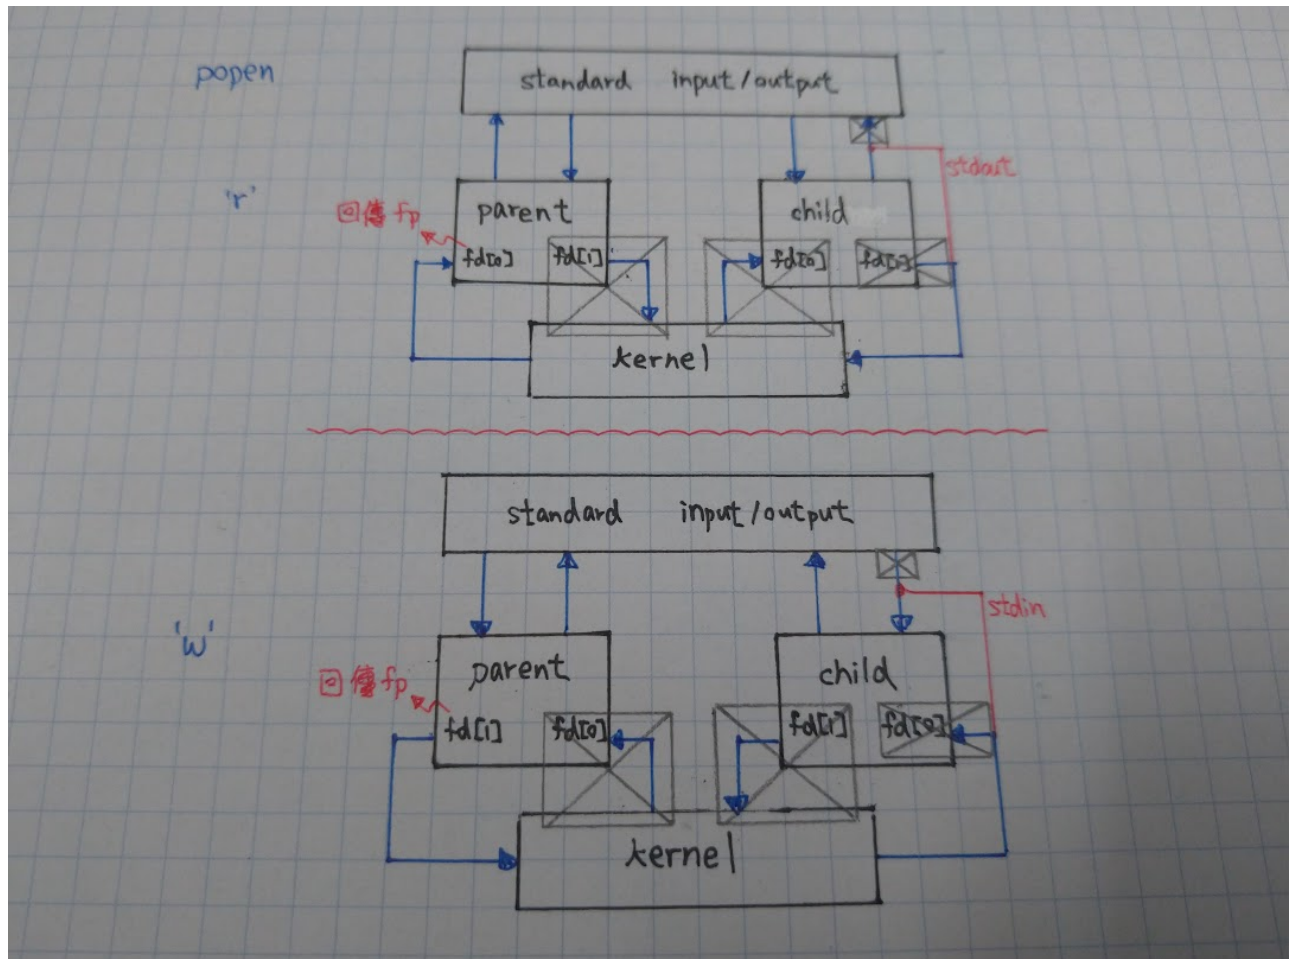 popen
standard input/output
stdout
'r'
回傳 fp
parent
child
fd[0] fd[1]
fd[0]
kernel
standard input/output
stdin
'w'
回傳 fp
parent
child
fd[1] fd[0]
fd[1] fd[0]
kernel